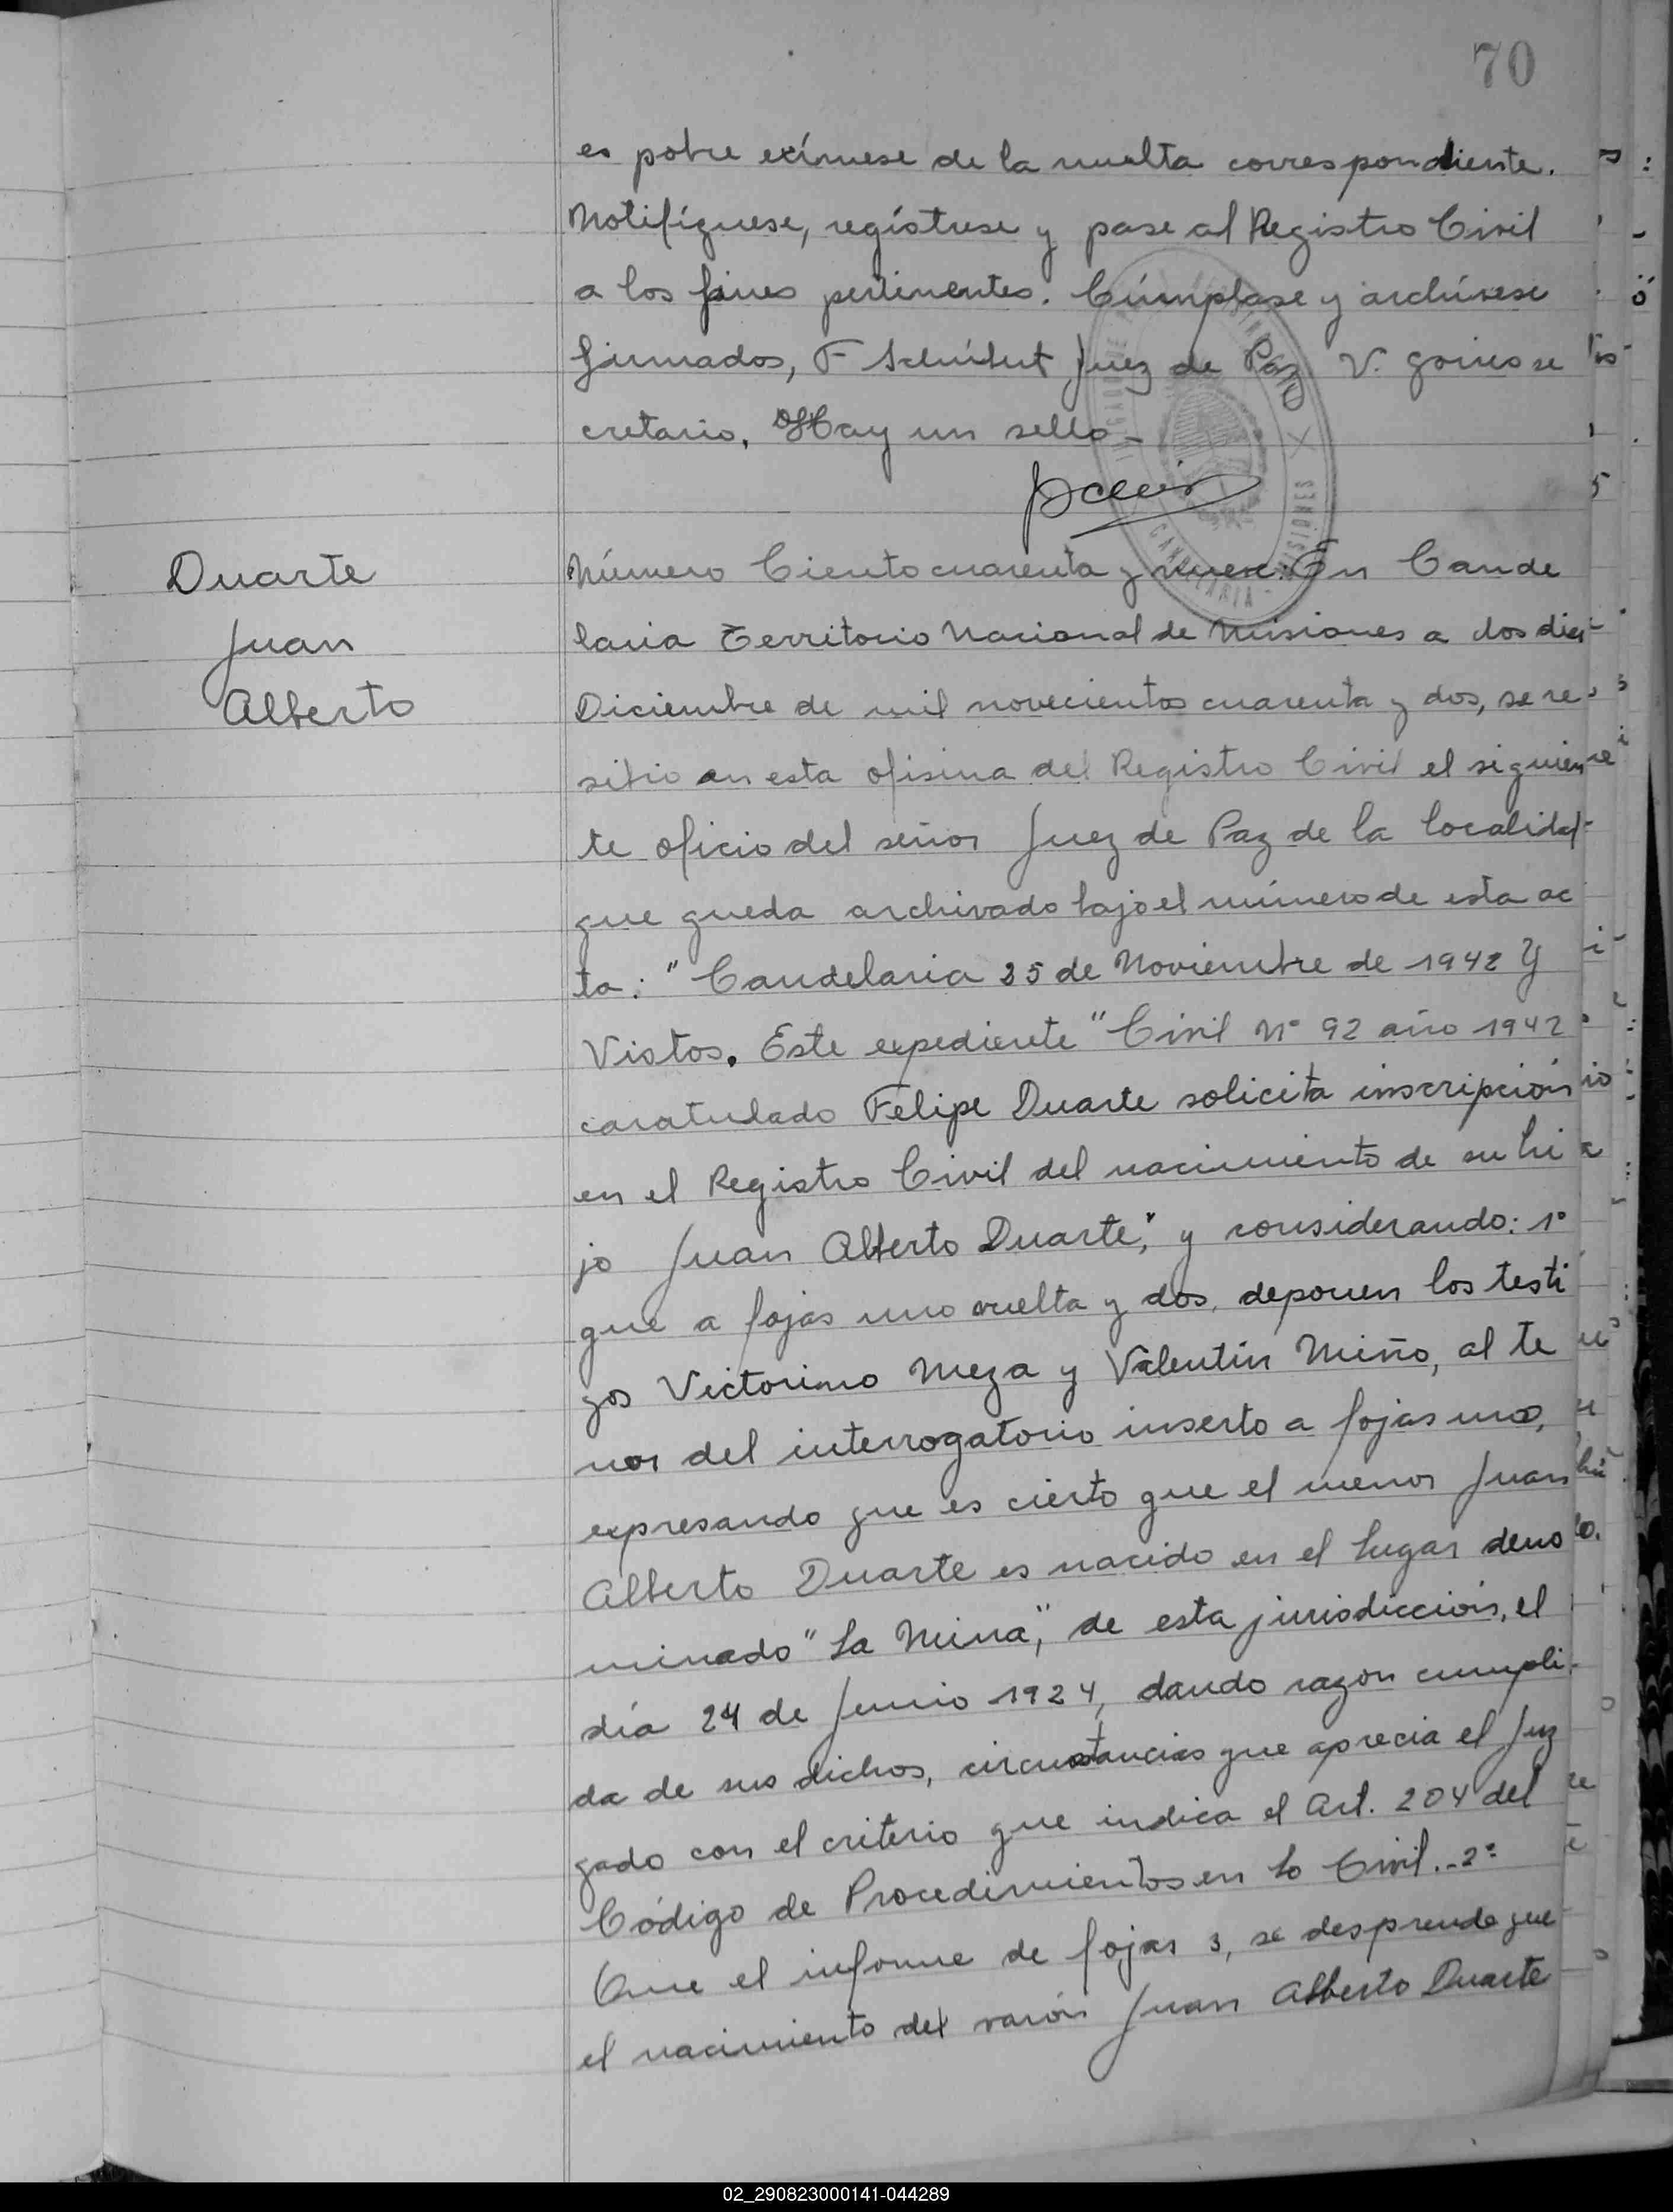 70
es pobre exímese de la multa correspondiente.
Notifíquese, regístrese y pase al Registro Civil
a los fines pertinentes. Cúmplase y archívese
firmados, F Juez de Paz V. Goires se
cretario. Hay un sello -
JUZGADO DE PAZ
CANDELARIA - MISIONES
Duarte
Juan
Alberto
Número Ciento cuarenta y nueve: En Cande
laria Territorio Nacional de Misiones a dos dias
Diciembre de mil novecientos cuarenta y dos, se re
sibio en esta ofisina del Registro Civil el siguien
te oficio del señor Juez de Paz de la localidad
que queda archivado bajo el número de esta ac
ta: "Candelaria 25 de Noviembre de 1942 Y
Vistos. Este expediente "Civil Nº 92 año 1942
caratulado Felipe Duarte solicita inscripción
en el Registro Civil del nacimiento de su hi
jo Juan Alberto Duarte", y considerando: 1º
que a fojas uno vuelta y dos, deponen los testi
gos Victorino Meza y Valentín Miño, al te
nor del interrogatorio inserto a fojas uno,
expresando que es cierto que el menor Juan
Alberto Duarte es nacido en el Lugar deno
minado "La Mina", de esta jurisdicción, el
día 24 de Junio 1924, dando razón cumpli
da de sus dichos, circustancias que aprecia el Juz
gado con el criterio que indica el Art. 204 del
Código de Procedimientos en lo Civil. - 2º
Que el informe de fojas 3, se desprende que
el nacimiento del varón Juan Alberto Duarte
02_290823000141-044289